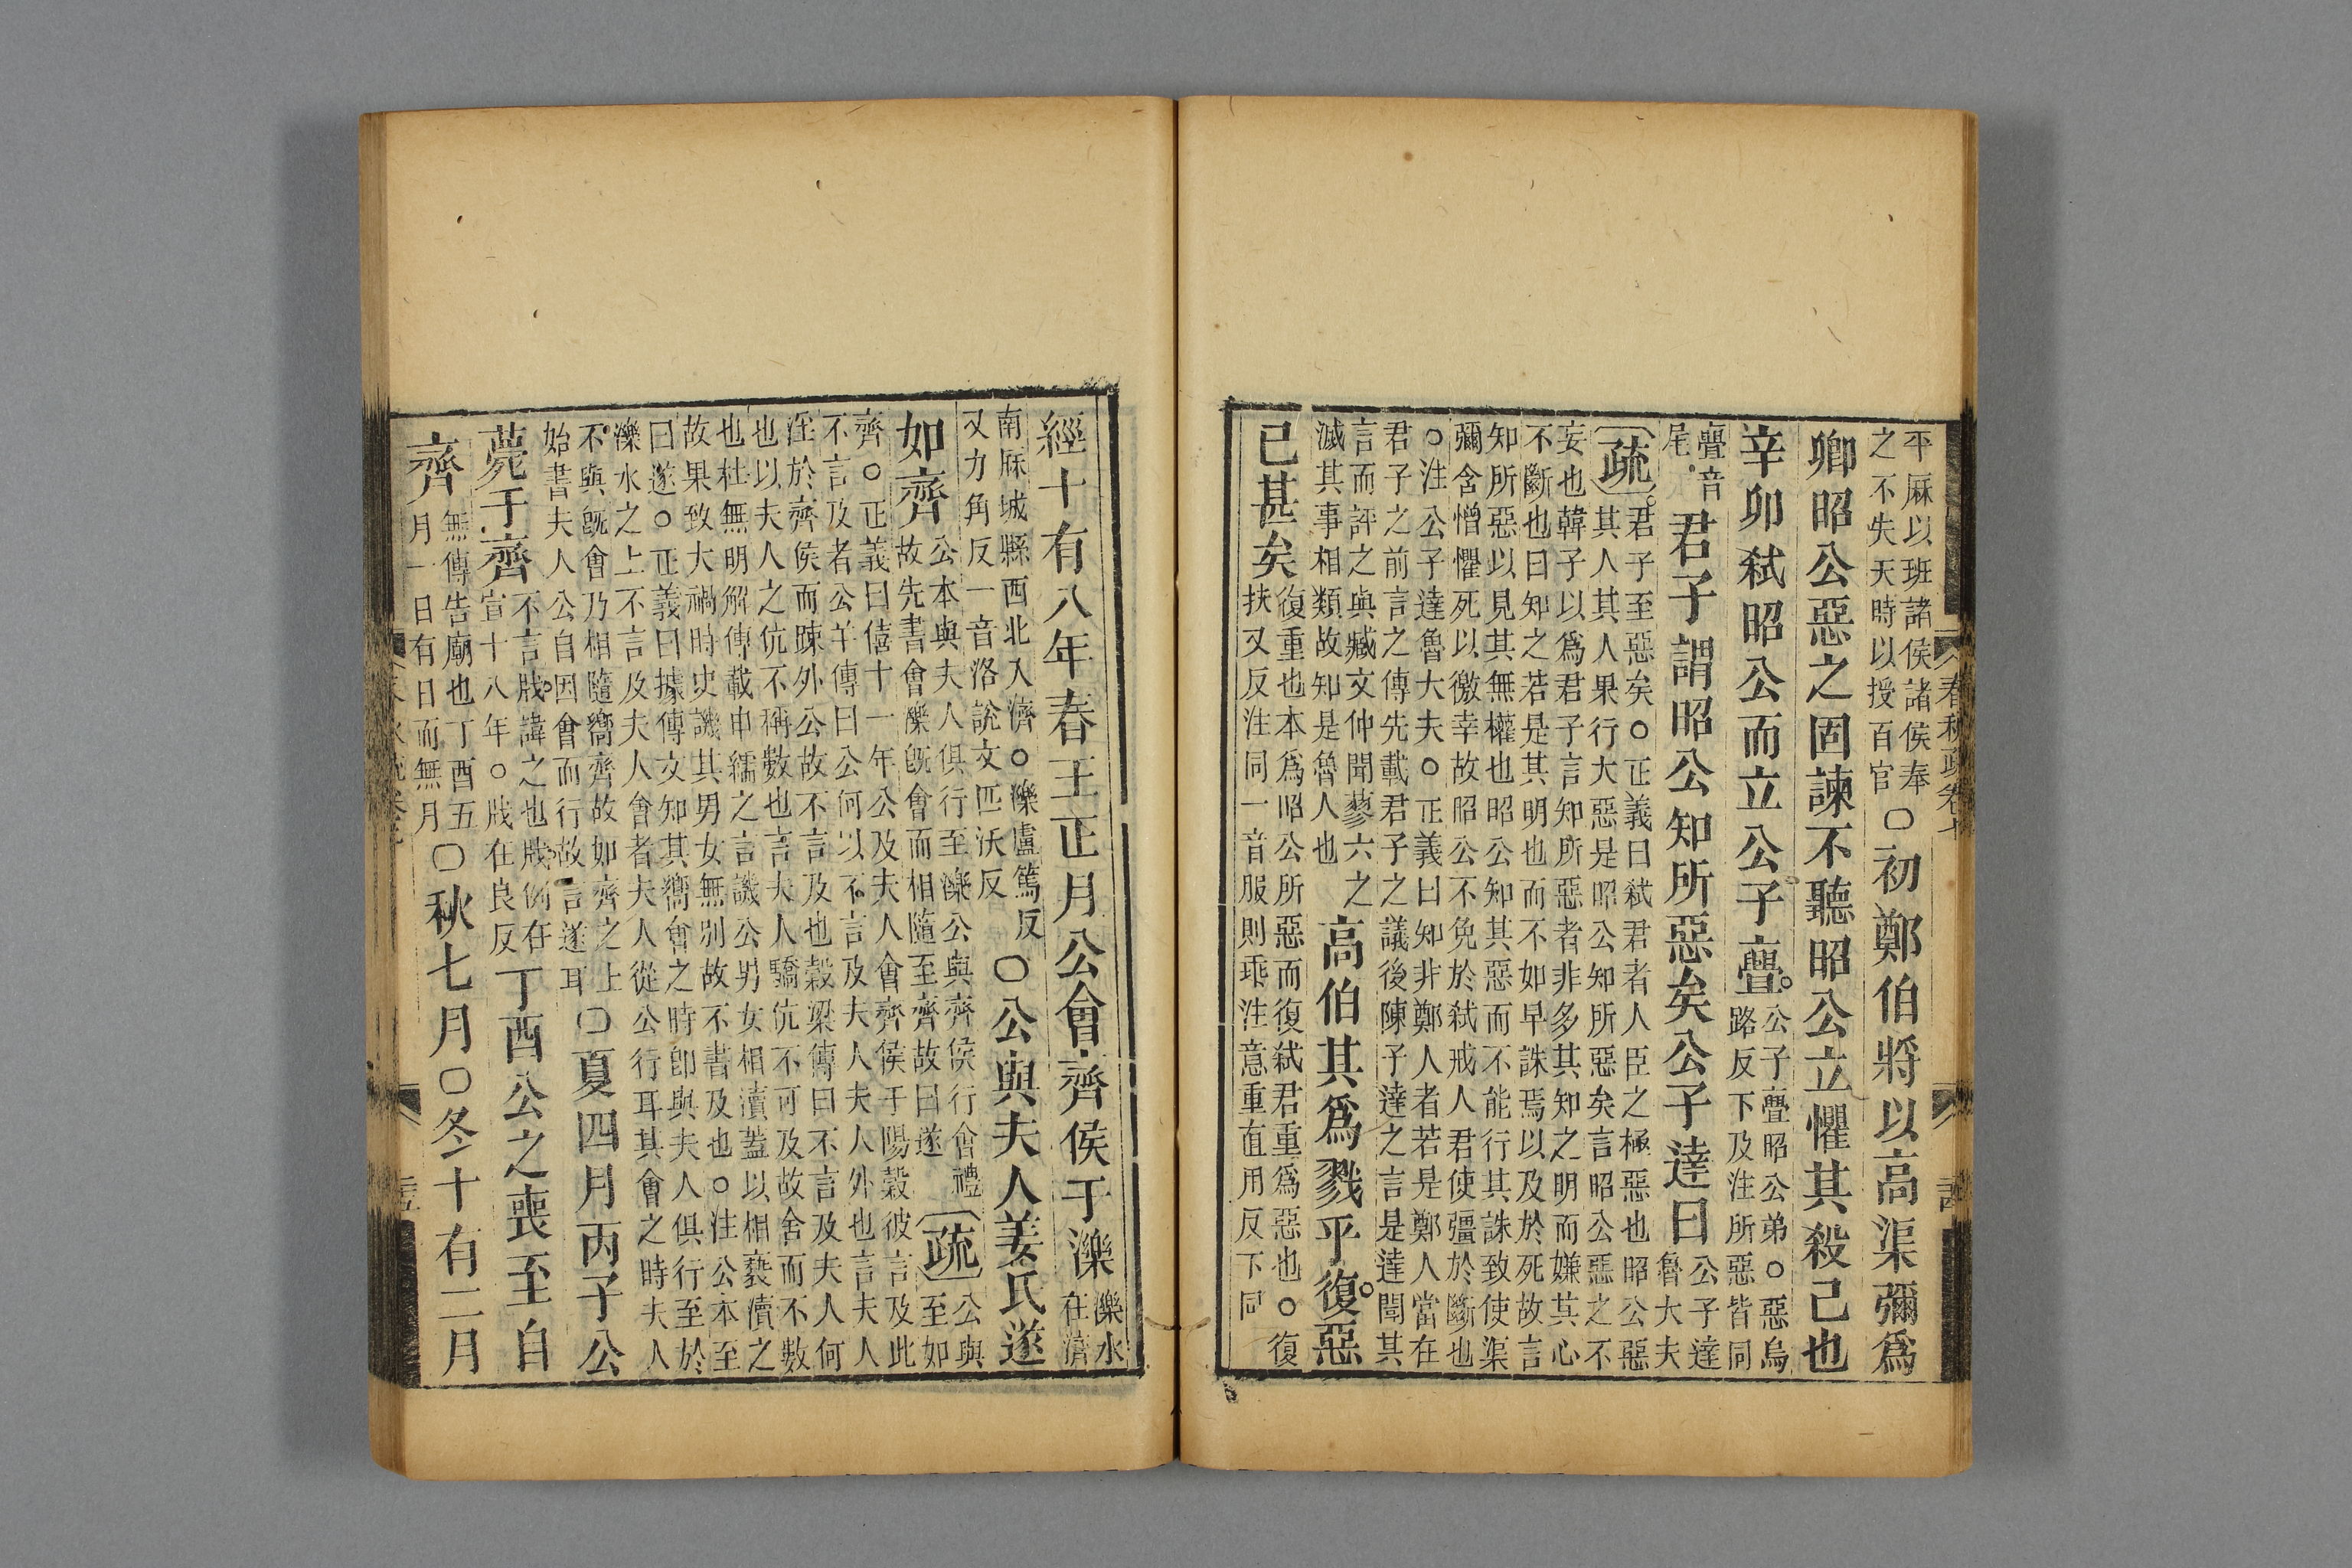 平厤以班諸侯諸侯奉
之不失天時以授百官
○初鄭伯將以高渠彌爲
卿昭公惡之固諫不聽昭公立懼其殺己也
辛卯弒昭公而立公子亹
公子亹昭公弟○惡烏
路反下及注所惡皆同
亹音
尾
君子謂昭公知所惡矣公子達曰
公子達
魯大夫
疏
君子至惡矣○正義曰弒君者人臣之極惡也昭公惡
其人其人果行大惡是昭公知所惡矣言昭公惡之不
妄也韓子以爲君子言知所惡者非多其知之明而嫌其心
不斷也曰知之若是其明也而不如早誅焉以及於死故言
知所惡以見其無權也昭公知其惡而不能行其誅致使渠
彌含憎懼死以徼幸故昭公不免於弒戒人君使彊於斷也
○注公子達魯大夫○正義曰知非鄭人者若是鄭人當在
君子之前言之傳先載君子之議後陳子達之言是達聞其
言而評之與臧文仲聞蓼六之
滅其事相類故知是魯人也
高伯其爲戮乎復惡
已甚矣
復重也本爲昭公所惡而復弒君重爲惡也○復
扶又反注同一音服則乖注意重直用反下同
經十有八年春王正月公會齊侯于濼
濼水
在濟
南厤城縣西北入濟○濼盧篤反
又力角反一音洛說文匹沃反
○公與夫人姜氏遂
如齊
公本與夫人俱行至濼公與齊侯行會禮
故先書會濼旣會而相隨至齊故曰遂
疏
公與
至如
齊○正義曰僖十一年公及夫人會齊侯于陽穀彼言及此
不言及者公羊傳曰公何以不言及夫人夫人外也言夫人
淫於齊侯而踈外公故不言及也穀梁傳曰不言及夫人何
也以夫人之伉不稱數也言夫人驕伉不可及故舍而不數
也杜無明解傳載申繻之言譏公男女相瀆蓋以相褻瀆之
故果致大禍時史譏其男女無別故不書及也○注公本至
曰遂○正義曰據傳文知其嚮會之時卽與夫人俱行至於
濼水之上不言及夫人會者夫人從公行耳其會之時夫人
不與旣會乃相隨嚮齊故如齊之上
始書夫人公自因會而行故言遂耳
○夏四月丙子公
薨于齊
不言戕諱之也戕例在
宣十八年○戕在良反
丁酉公之喪至自
齊
無傳告廟也丁酉五
月一日有日而無月
○秋七月○冬十有二月